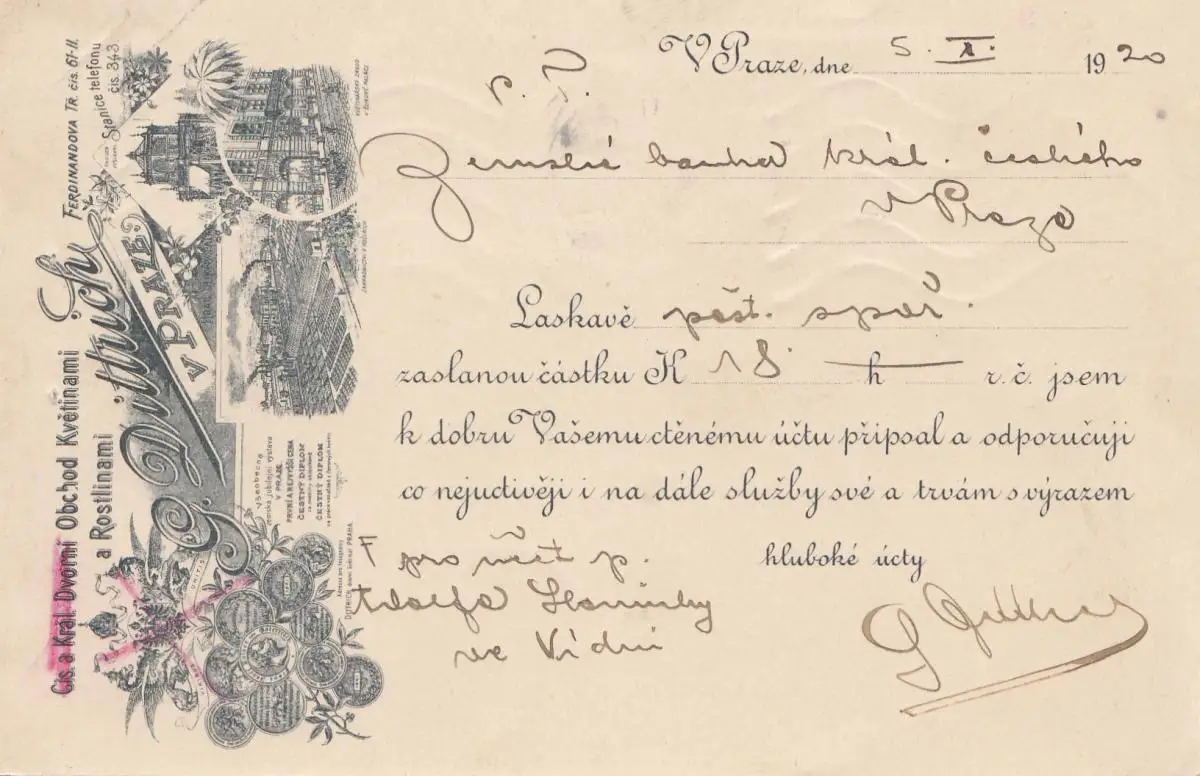 V Praze, dne 5. X. 1920
P. T.
Zemské banka král. českého
v Praze
Laskavě pošt. spoř.
zaslanou částku K 18 h — r. č. jsem
k dobru Vašemu ctěnému účtu připsal a odporučuji
co nejuctivěji i na dále služby své a trvám s výrazem
hluboké úcty
pro účet p.
Adolfa
ve Vídni
G. Dittrich
Cís. a Král. Dvorní Obchod Květinami
a Rostlinami
G. Dittrich
V PRAZE.
FERDINANDOVA TŘ. čís. 61-II.
Stanice telefonu
čís. 343
Všeobecná
zemská jubilejní výstava
PRAZE
PRVNÍ A NEJVYŠŠÍ CENA
ČESTNÝ DIPLOM
ČESTNÝ DIPLOM
Adresa pro telegramy:
DITTRICH, dvorní květinář PRAHA